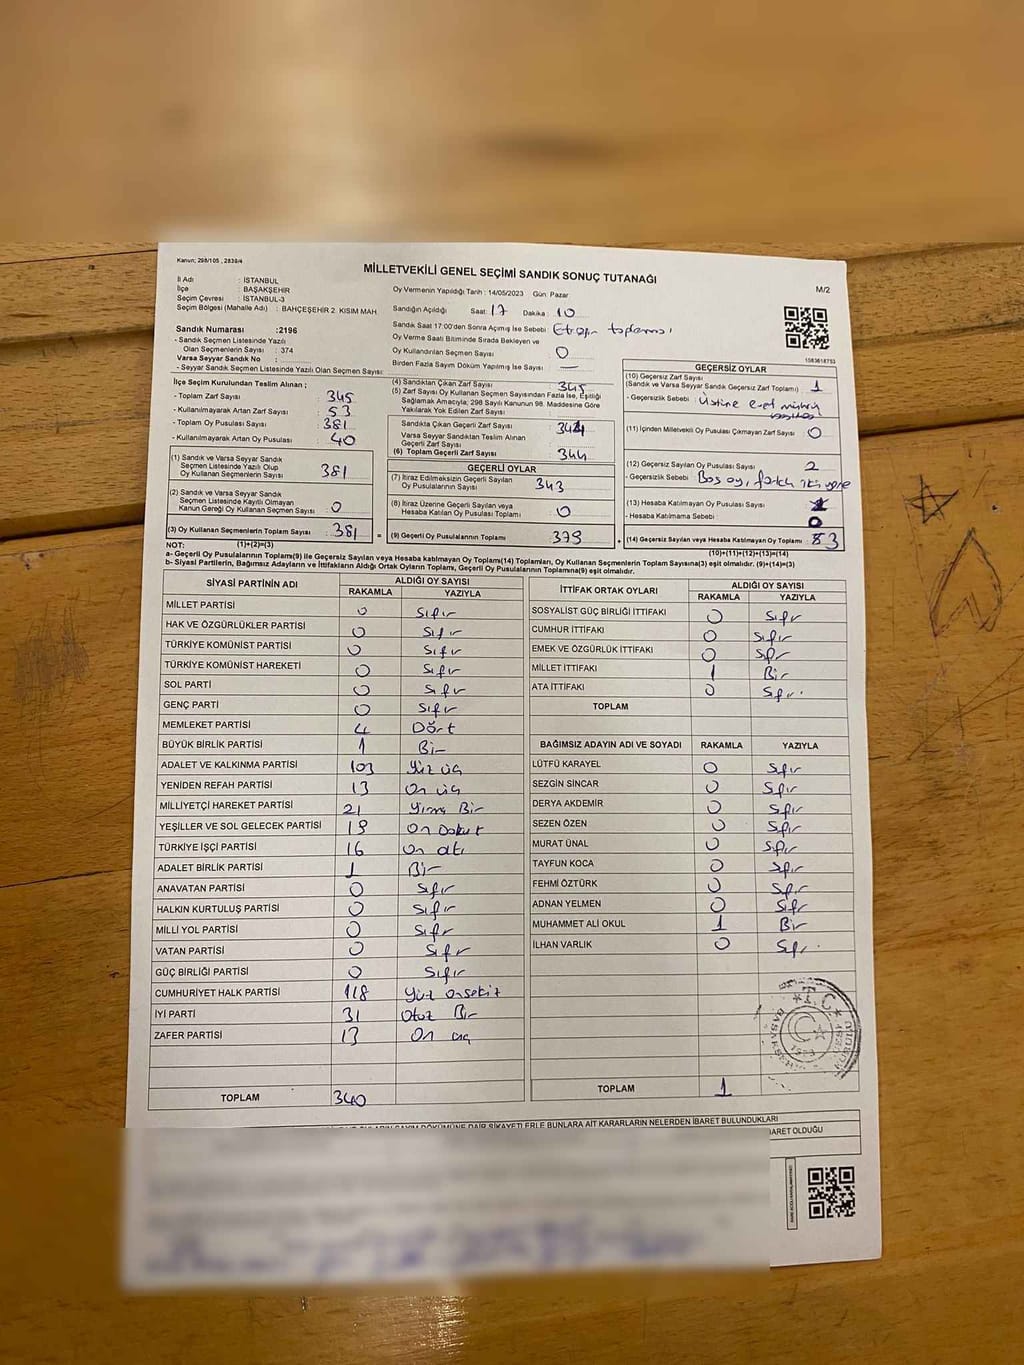 Kanun; 298/105 , 2839/4
MİLLETVEKİLİ GENEL SEÇİMİ SANDIK SONUÇ TUTANAĞI
M/2
İl Adı : İSTANBUL
İlçe : BAŞAKŞEHİR
Seçim Çevresi : İSTANBUL-3
Seçim Bölgesi (Mahalle Adı) : BAHÇEŞEHİR 2 KISIM MAH
Sandık Numarası :2196
- Sandık Seçmen Listesinde Yazılı
Olan Seçmenlerin Sayısı : 374
Varsa Seyyar Sandık No :
- Seyyar Sandık Seçmen Listesinde Yazılı Olan Seçmen Sayısı:
Oy Vermenin Yapıldığı Tarih : 14/05/2023 Gün: Pazar
Sandığın Açıldığı Saat: 17 Dakika : 10
Sandık Saat 17:00'den Sonra Açılmış İse Sebebi :
Oy Verme Saati Bitiminde Sırada Bekleyen ve
Oy Kullandırılan Seçmen Sayısı : 0
Birden Fazla Sayım Döküm Yapılmış İse Sayısı : —
1083618753
İlçe Seçim Kurulundan Teslim Alınan ;
- Toplam Zarf Sayısı : 345
- Kullanılmayarak Artan Zarf Sayısı : 53
- Toplam Oy Pusulası Sayısı : 381
- Kullanılmayarak Artan Oy Pusulası : 40
(1) Sandık ve Varsa Seyyar Sandık
Seçmen Listesinde Yazılı Olup
Oy Kullanan Seçmenlerin Sayısı : 381
(2) Sandık ve Varsa Seyyar Sandık
Seçmen Listesinde Kayıtlı Olmayan
Kanun Gereği Oy Kullanan Seçmen Sayısı : 0
(3) Oy Kullanan Seçmenlerin Toplam Sayısı : 381
(1)+(2)=(3)
(4) Sandıktan Çıkan Zarf Sayısı : 345
(5) Zarf Sayısı Oy Kullanan Seçmen Sayısından Fazla İse, Eşitliği
Sağlamak Amacıyla; 298 Sayılı Kanunun 98. Maddesine Göre
Yakılarak Yok Edilen Zarf Sayısı :
Sandıkta Çıkan Geçerli Zarf Sayısı : 344
Varsa Seyyar Sandıktan Teslim Alınan
Geçerli Zarf Sayısı :
(6) Toplam Geçerli Zarf Sayısı : 344
GEÇERLİ OYLAR
(7) İtiraz Edilmeksizin Geçerli Sayılan
Oy Pusulalarının Sayısı : 343
(8) İtiraz Üzerine Geçerli Sayılan veya
Hesaba Katılan Oy Pusulası Toplamı : 0
= (9) Geçerli Oy Pusulalarının Toplamı : 379
GEÇERSİZ OYLAR
(10) Geçersiz Zarf Sayısı
(Sandık ve Varsa Seyyar Sandık Geçersiz Zarf Toplamı) : 1
- Geçersizlik Sebebi : Üstüne evet mührü
(11) İçinden Milletvekili Oy Pusulası Çıkmayan Zarf Sayısı : 0
(12) Geçersiz Sayılan Oy Pusulası Sayısı : 2
- Geçersizlik Sebebi : Boş oy,
(13) Hesaba Katılmayan Oy Pusulası Sayısı :
- Hesaba Katılmama Sebebi : 0
+ (14) Geçersiz Sayılan veya Hesaba Katılmayan Oy Toplamı : 3
(10)+(11)+(12)+(13)=(14)
NOT:
a- Geçerli Oy Pusulalarının Toplamı(9) ile Geçersiz Sayılan veya Hesaba katılmayan Oy Toplamı(14) Toplamları, Oy Kullanan Seçmenlerin Toplam Sayısına(3) eşit olmalıdır. (9)+(14)=(3)
b- Siyasi Partilerin, Bağımsız Adayların ve İttifakların Aldığı Ortak Oyların Toplamı, Geçerli Oy Pusulalarının Toplamına(9) eşit olmalıdır.
SİYASİ PARTİNİN ADI ALDIĞI OY SAYISI
RAKAMLA YAZIYLA
MİLLET PARTİSİ 0 Sıfır
HAK VE ÖZGÜRLÜKLER PARTİSİ 0 Sıfır
TÜRKİYE KOMÜNİST PARTİSİ 0 Sıfır
TÜRKİYE KOMÜNİST HAREKETİ 0 Sıfır
SOL PARTİ 0 Sıfır
GENÇ PARTİ 0 Sıfır
MEMLEKET PARTİSİ 4 Dört
BÜYÜK BİRLİK PARTİSİ 1 Bir
ADALET VE KALKINMA PARTİSİ 103 Yüz üç
YENİDEN REFAH PARTİSİ 13 On üç
MİLLİYETÇİ HAREKET PARTİSİ 21 Yirmi Bir
YEŞİLLER VE SOL GELECEK PARTİSİ 19 On Dokuz
TÜRKİYE İŞÇİ PARTİSİ 16 On altı
ADALET BİRLİK PARTİSİ 1 Bir
ANAVATAN PARTİSİ 0 Sıfır
HALKIN KURTULUŞ PARTİSİ 0 Sıfır
MİLLİ YOL PARTİSİ 0 Sıfır
VATAN PARTİSİ 0 Sıfır
GÜÇ BİRLİĞİ PARTİSİ 0 Sıfır
CUMHURİYET HALK PARTİSİ 118 Yüz onsekiz
İYİ PARTİ 31 Otuz Bir
ZAFER PARTİSİ 13 On üç
TOPLAM 340
İTTİFAK ORTAK OYLARI ALDIĞI OY SAYISI
RAKAMLA YAZIYLA
SOSYALİST GÜÇ BİRLİĞİ İTTİFAKI 0 Sıfır
CUMHUR İTTİFAKI 0 Sıfır
EMEK VE ÖZGÜRLÜK İTTİFAKI 0 Sıfır
MİLLET İTTİFAKI 1 Bir
ATA İTTİFAKI 0 Sıfır
TOPLAM
BAĞIMSIZ ADAYIN ADI VE SOYADI RAKAMLA YAZIYLA
LÜTFÜ KARAYEL 0 Sıfır
SEZGİN SİNCAR 0 Sıfır
DERYA AKDEMİR 0 Sıfır
SEZEN ÖZEN 0 Sıfır
MURAT ÜNAL 0 Sıfır
TAYFUN KOCA 0 Sıfır
FEHMİ ÖZTÜRK 0 Sıfır
ADNAN YELMEN 0 Sıfır
MUHAMMET ALİ OKUL 1 Bir
İLHAN VARLIK 0 Sıfır
T.C.
TOPLAM 1
SAYIM DÖKÜMÜNE DAİR ŞİKAYETLERLE BUNLARA AİT KARARLARIN NELERDEN İBARET BULUNDUKLARI
İBARET OLDUĞU